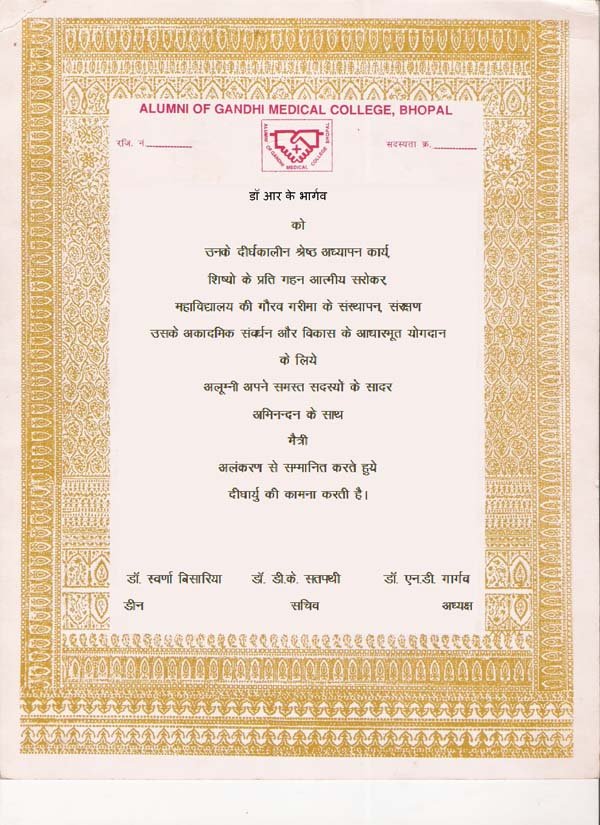 ALUMNI OF GANDHI MEDICAL COLLEGE, BHOPAL
रजि. नं.
ALUMNI OF GANDHI MEDICAL COLLEGE BHOPAL
सदस्यता क्र.
डॉ आर के भार्गव
को
उनके दीर्घकालीन श्रेष्ठ अध्यापन कार्य,
शिष्यो के प्रति गहन आत्मीय सरोकर,
महाविद्यालय की गौरव गरीमा के संस्थापन, संरक्षण
उसके अकादमिक संवर्धन और विकास के आधारमूत योगदान
के लिये
अलूम्नी अपने समस्त सदस्यों के सादर
अमिनन्दन के साथ
मैत्री
अलंकरण से सम्मानित करते हुये
दीघार्यु की कामना करती है।
डॉ. स्वर्णा बिसारिया डॉ. डी.के. सतपथी डॉ. एन.डी. गार्गव
डीन सचिव अध्यक्ष